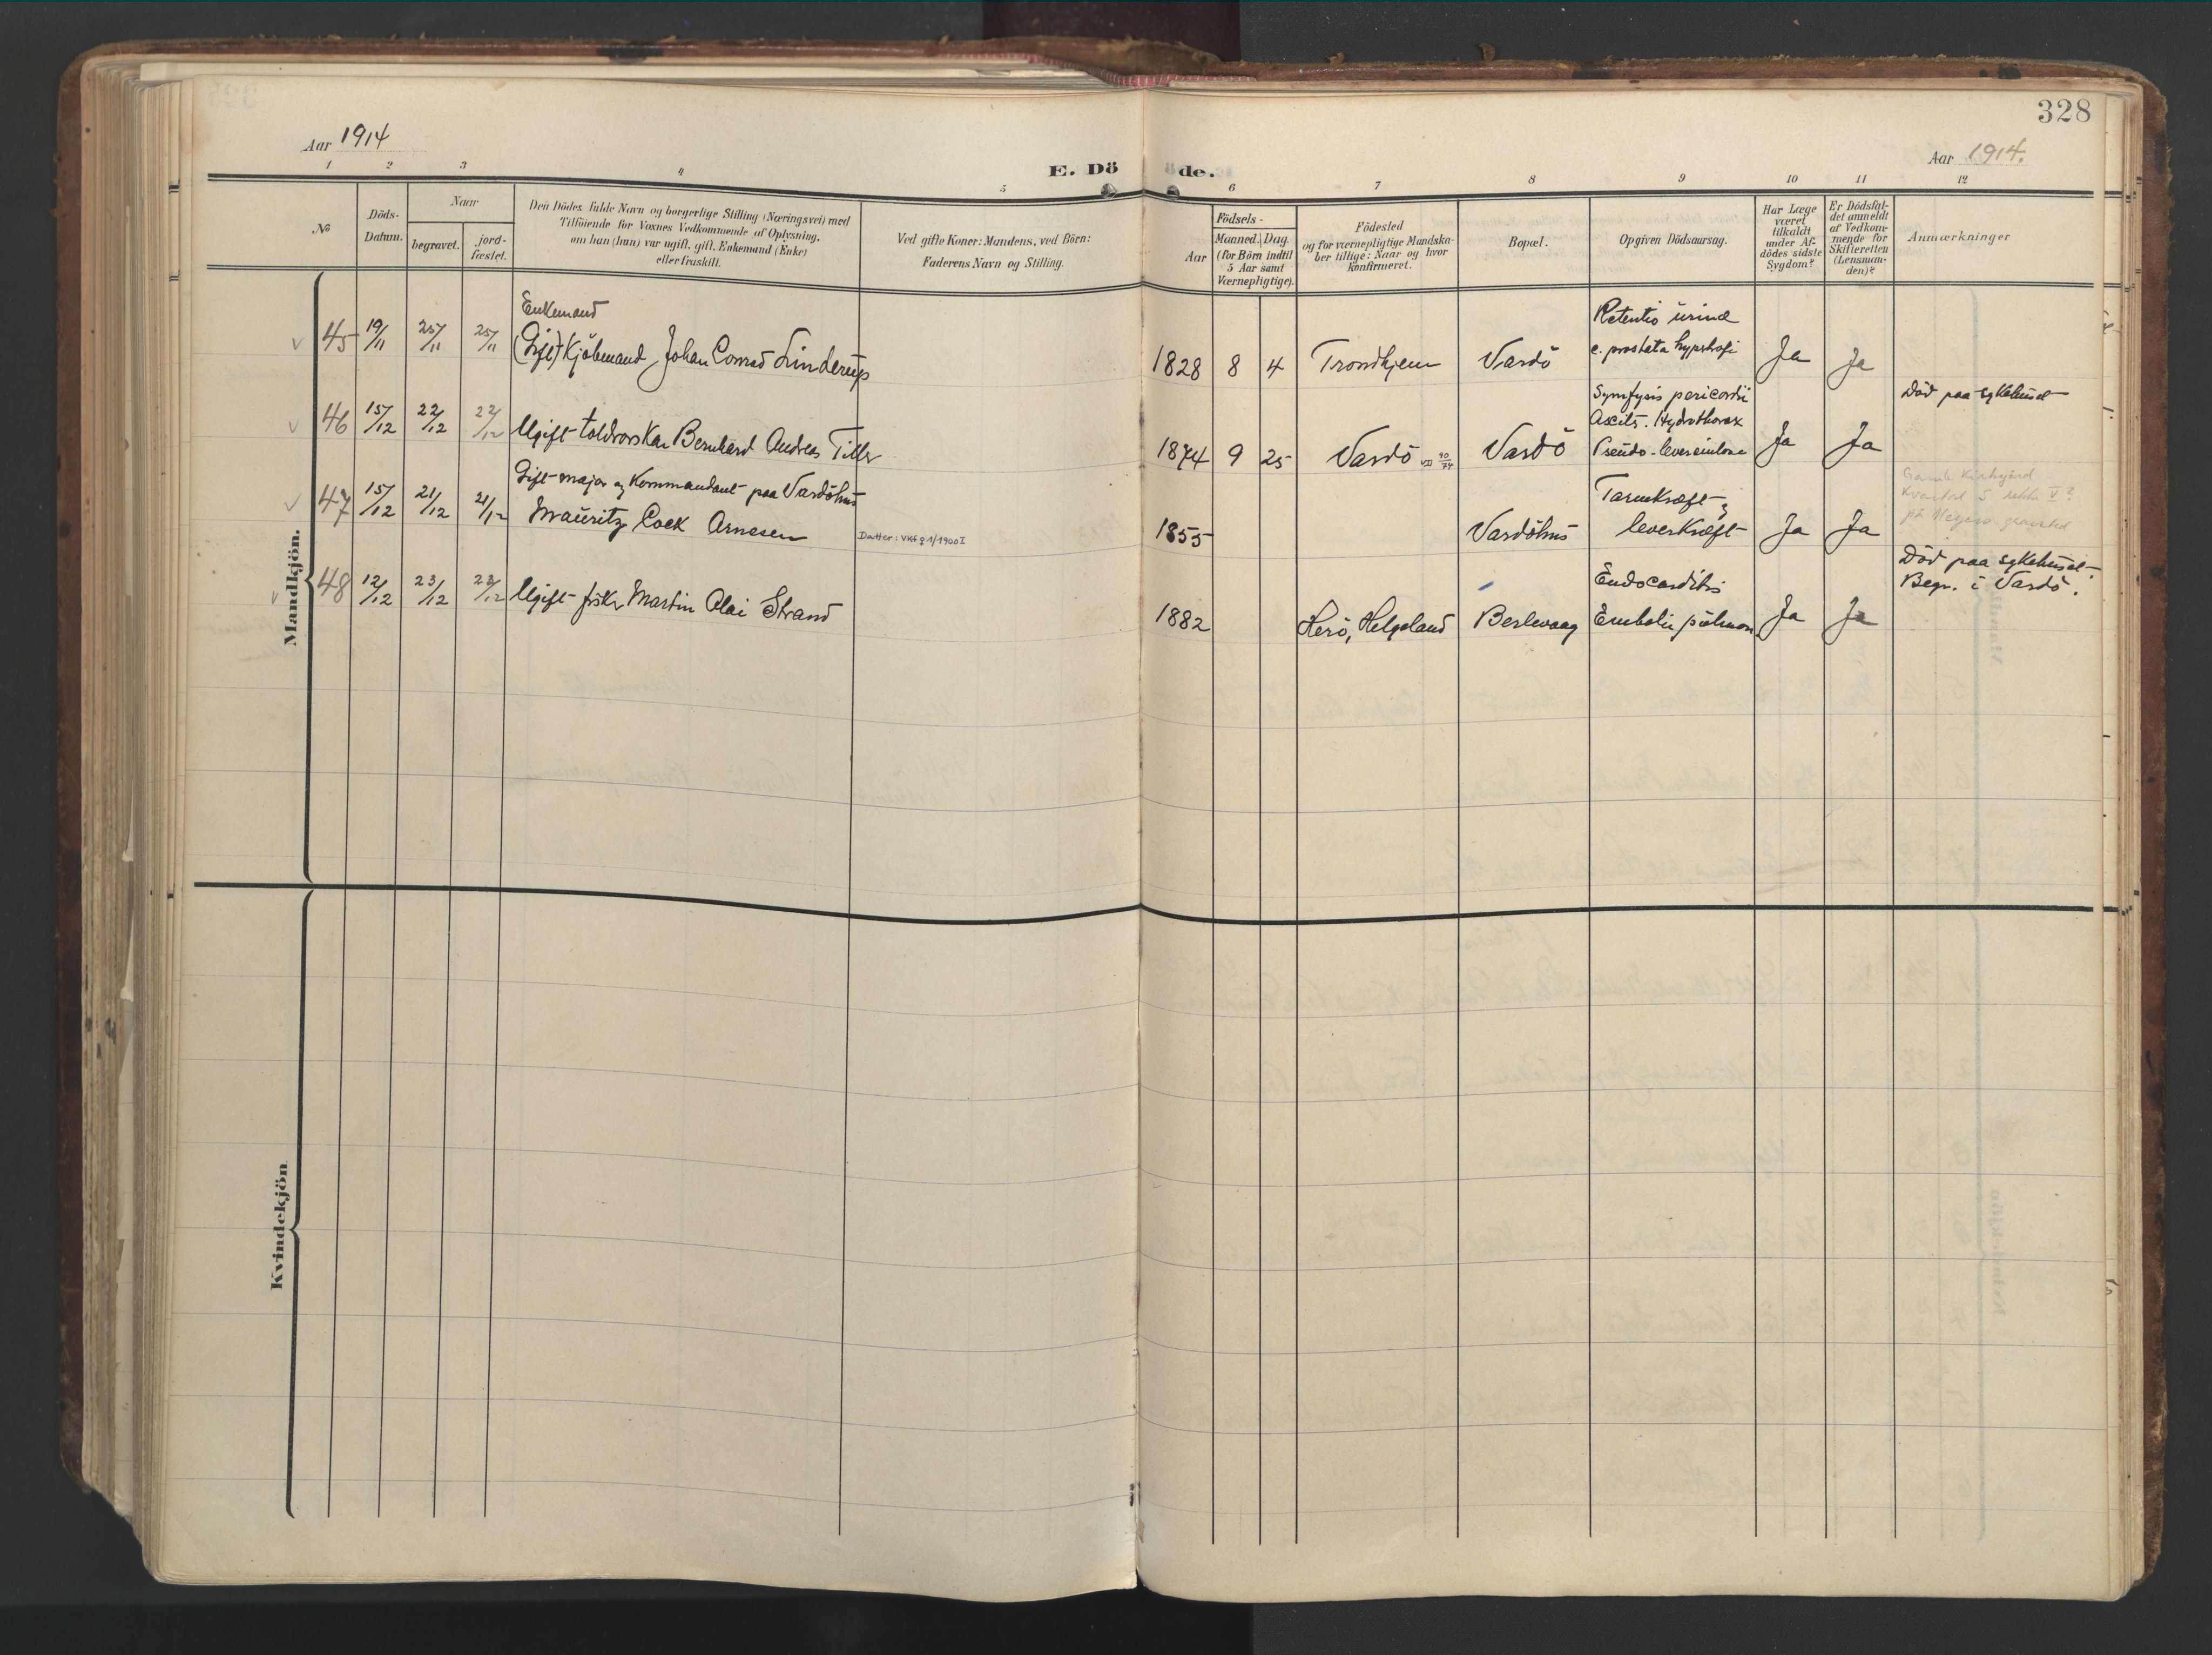 328
Aar 1914
Aar 1914.
E. Dö de.
1 2 3 4 5 6 7 8 9 10 11 12
№
Döds-
Datum.
Naar
begravet.
jord-
fæstet.
Den Dödes fulde Navn og borgerlige Stilling (Næringsvei) med
Tilföiende for Voxnes Vedkommende af Oplysning,
om han (hun) var ugift, gift, Enkemand (Enke)
eller fraskilt.
Ved gifte Koner: Mandens, ved Börn:
Faderens Navn og Stilling.
Födsels-
Aar
Maaned. Dag.
(for Börn indtil
5 Aar samt
Værnepligtige).
Födested
og for værnepligtige Mandska-
ber tillige: Naar og hvor
konfirmeret.
Bopæl.
Opgiven Dödsaarsag.
Har Læge
været
tilkaldt
under Af-
dödes sidste
Sygdom?
Er Dödsfal-
det anmeldt
af Vedkom-
mende for
Skifteretten
(Lensman-
den)?
Anmærkninger
Mandkjön.
Enkemand
45 19/11 25/11 25/11 (Gift) Kjöbmand Johan Conrad Linderup 1828 8 4 Trondhjem Vardö
Retentio urinæ
c. prostata hypertrofi
Ja Ja
46 15/12 22/12 22/12 Ugift toldvorskar Bernhard Andreas Tiller 1874 9 25 Vardö Vardö
Symfysis pericordii
Ascites. Hydrothorax
Pseudo-
Ja Ja
Död paa sykehuset
Gift major og Kommandant paa Vardöhus
47 15/12 21/12 21/12 Mauritz Cock Arnesen
Datter: VKG ♀ 1/1900 I
1855 Vardöhus
Tarmkræft og
leverkræft
Ja Ja
Gamle Kirkegård
Kvartal 5 rekke V?
48 12/12 23/12 23/12 Ugift fisker Martin Olai Strand 1882 Herö, Helgeland Berlevaag
Endocarditis
Emboli pulmon
Ja Ja
Död paa sykehuset.
Begr. i Vardö.
Kvindekjön